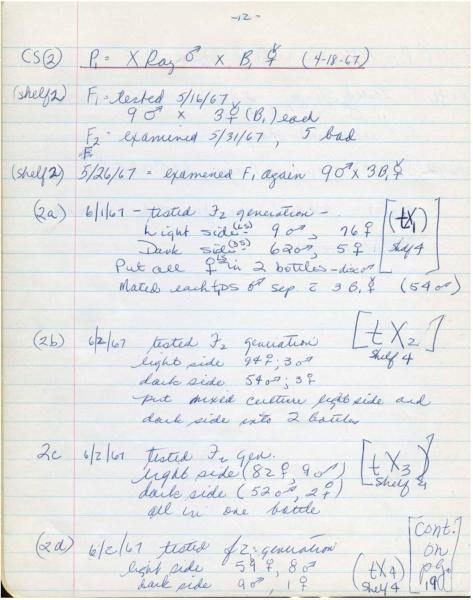 -12-
CS(2) P₁ = X Ray ♂ x B₁ ☿ (4-18-67)
(shelf 2) F₁ = tested 5/16/67
9♂ x 3☿ (B₁) each
F₂ - examened 5/31/67, 5 bad
F₁
(shelf 2) 5/26/67 = examened F₁ again 9♂ x 3B₁☿
(2a) 6/1/67 - tested F₂ generation - [(tX₁)
Light side (LS) 9♂, 76♀
Dark side (DS) 62♂, 5♀ shelf 4]
Put all ♀ in 2 bottles - disc ♂
Mated each DS ♂ sep. c̄ 3 B₁☿ (54♂)
(2b) 6/2/67 tested F₂ generation [tX₂]
light side 94♀; 3♂ shelf 4
dark side 54♂; 3♀
put mixed culture light side and
dark side into 2 bottles
2c 6/2/67 tested F₂ gen. [tX₃)
light side (82♀, 9♂) shelf 4]
dark side (52♂, 2♀)
all in one bottle
(2d) 6/2/67 tested f2: generation [cont. on pg. 19]
light side 59♀, 8♂ (tX4)
dark side 9♂, 1♀ shelf 4